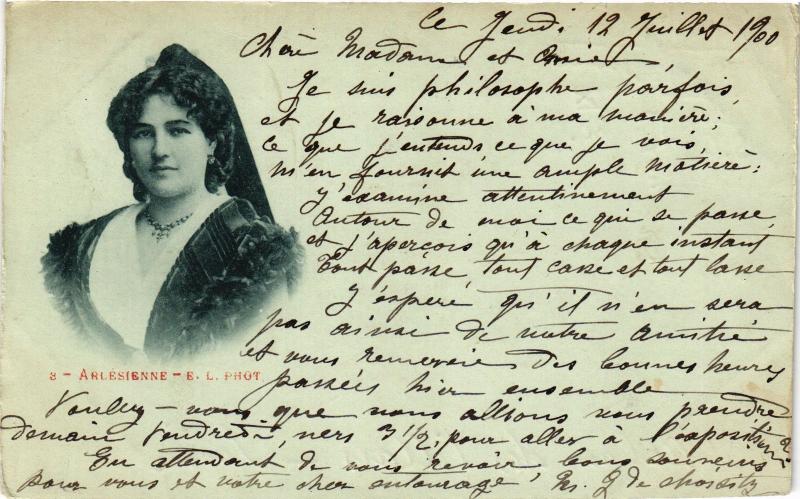 ce Jeudi 12 Juillet 1900
Chère Madame et Amie,
Je suis philosophe parfois,
et je raisonne à ma manière;
Ce que j'entends ce que je vois,
M'en fournit une ample matière:
J'examine attentivement
Autour de moi ce qui se passe,
et j'aperçois qu'à chaque instant
Tout passe, tout casse et tout lasse
J'espère qu'il n'en sera
pas ainsi de notre amitié
et vous remercie des bonnes heures
passées hier ensemble.
8 - ARLÉSIENNE - E. L. PHOT
Voulez-vous que nous allions vous prendre
demain Vendredi, vers 3 1/2, pour aller à l'exposition?
En attendant de vous revoir, bons souvenirs
pour vous et votre cher entourage,